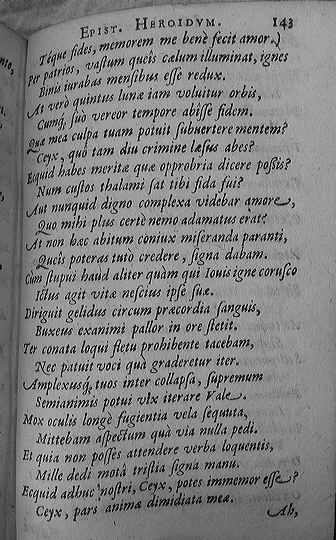 EPIST. HEROIDVM. 143
Téque fides, memorem me benè fecit amor.)
Per patrios, vastum queîs cælum illuminat, ignes
Binis iurabas mensibus esse redux.
At verò quintus lunæ iam voluitur orbis,
Cumq́; suò vereor tempore abîsse fidem.
Quæ mea culpa tuam potuit subuertere mentem?
Ceyx, quô tam diu crimine læsus abes?
Ecquid habes meritæ quæ opprobria dicere possis?
Num custos thalami sat tibi fida fui?
Aut nunquid digno complexa videbar amore,
Quo mihi plus certè nemo adamatus erat?
At non hæc abitum coniux miseranda paranti,
Queîs poteras tutò credere, signa dabam.
Cùm stupui haud aliter quàm qui Iouis igne corusco
Ictus agit vitæ nescius ipse suæ.
Diriguit gelidus circum præcordia sanguis,
Buxeus exanimi pallor in ore stetit.
Ter conata loqui fletu prohibente tacebam,
Nec patuit voci quà graderetur iter.
Amplexusq́; tuos inter collapsa, supremum
Semianimis potui vix iterare Vale.
Mox oculis longè fugientia vela sequuta,
Mittebam aspectum quà via nulla pedi.
Et quia non posses attendere verba loquentis,
Mille dedi motâ tristia signa manu.
Ecquid adhuc nostri, Ceyx, potes immemor esse?
Ceyx, pars animæ dimidiata meæ.
Ah,